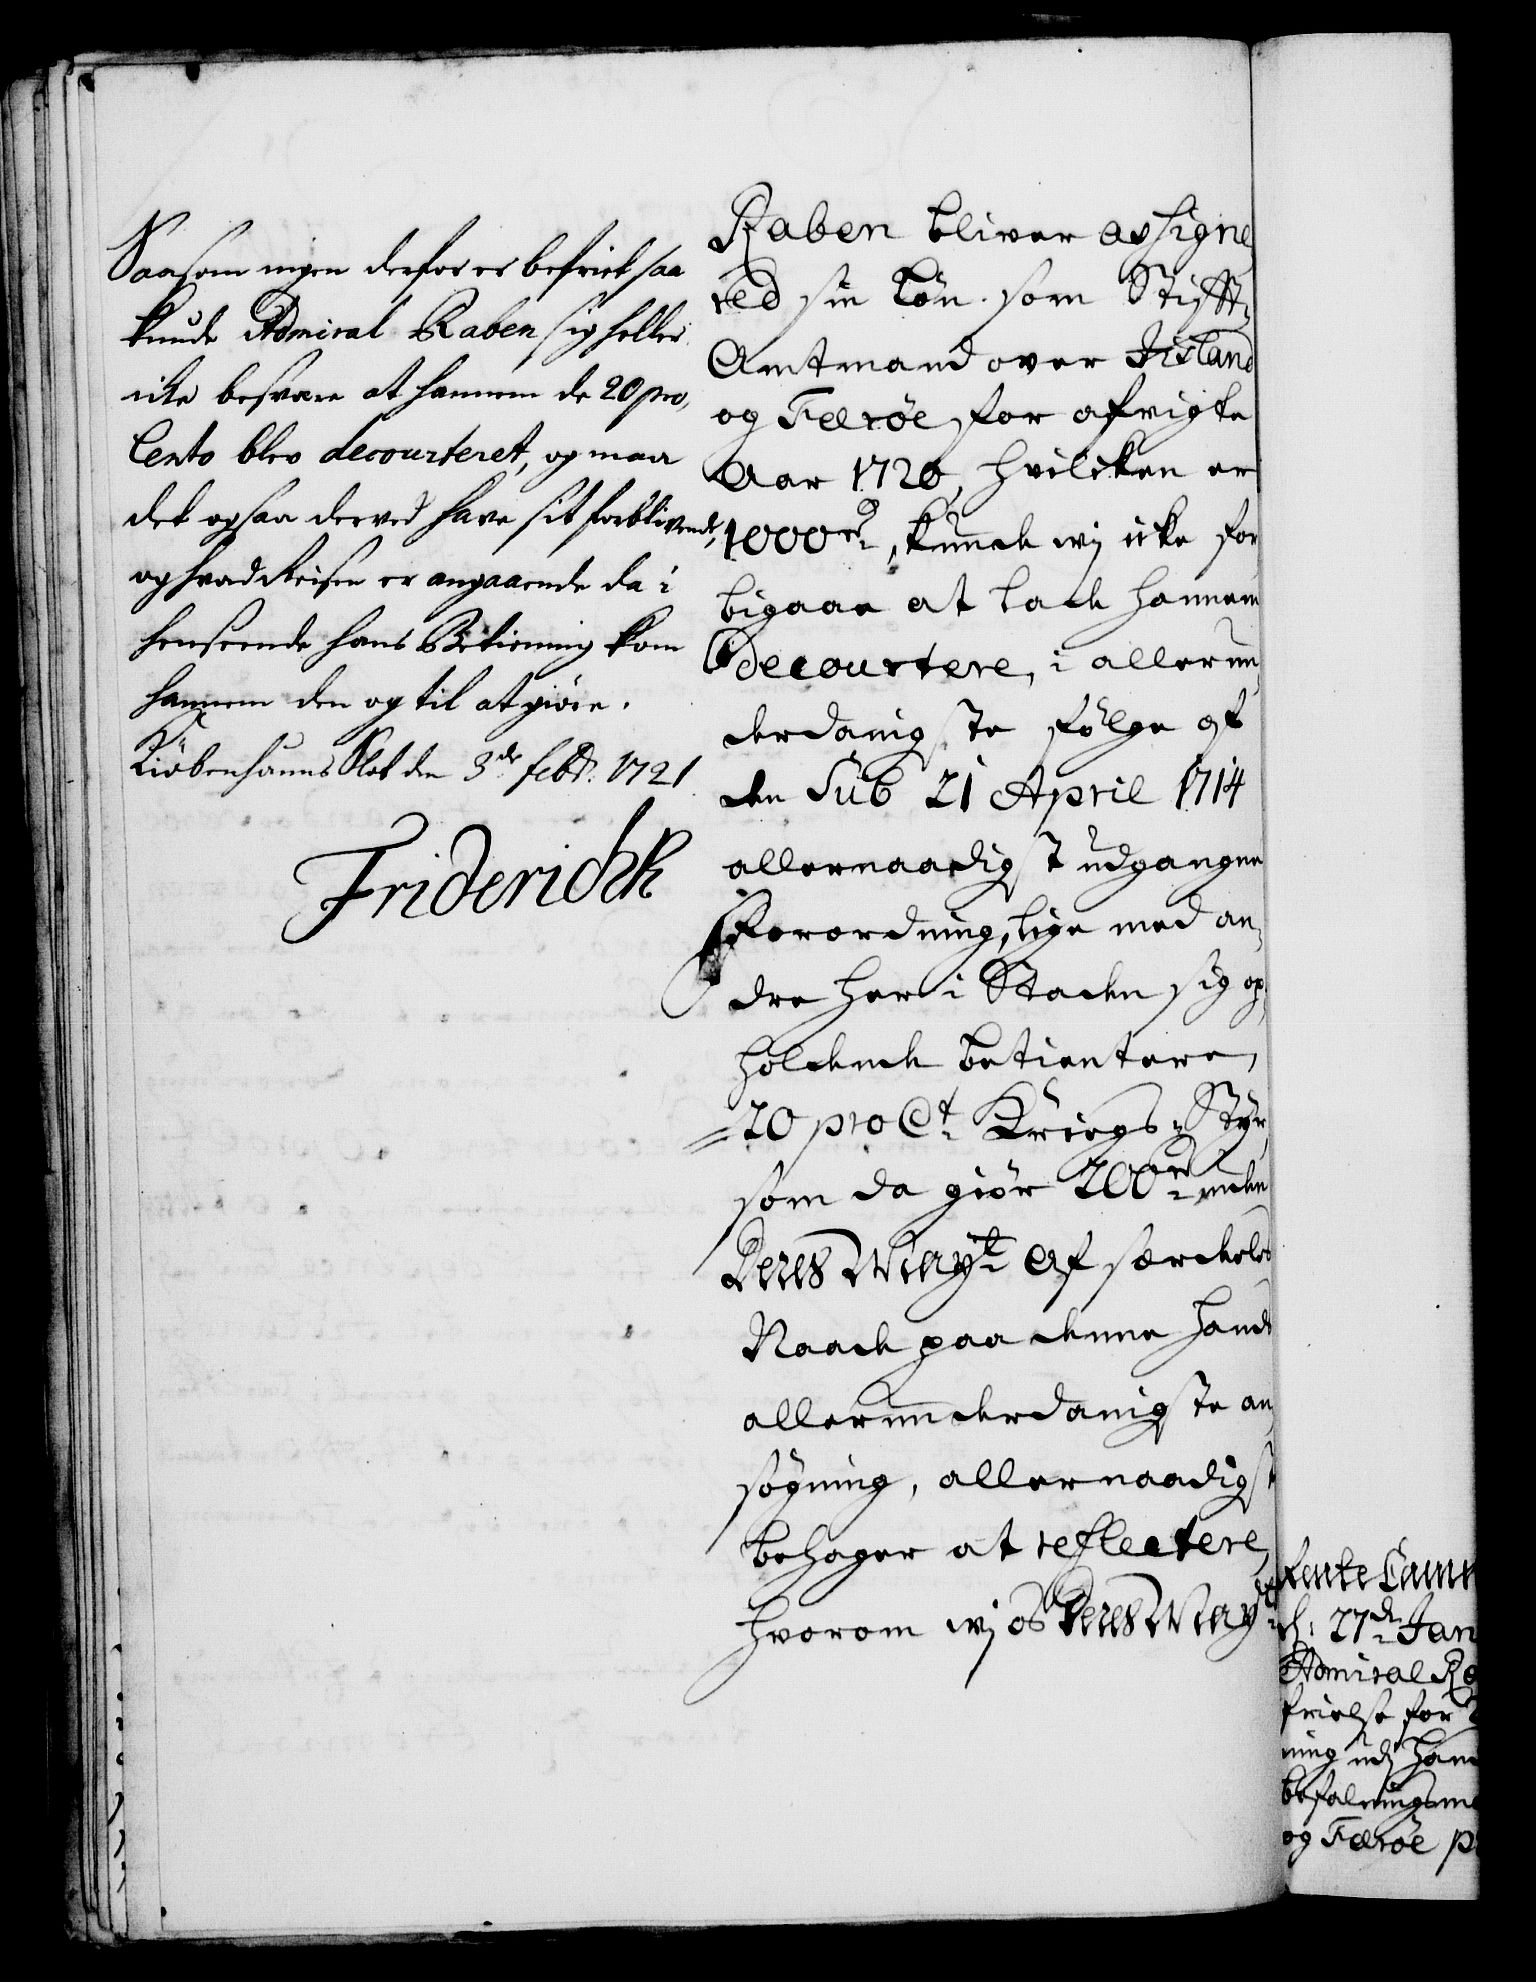 Saasom ingen derfor er befriet saa
kunde Admiral Raben sig heller
icke besvære at hannem de 20 pro,
Cento blev decourteret, og maa
det ogsaa derved have sit forblivende,
og hvad Reisen er angaaende da i
henseende hans Betiening kom
hannem den og til at giøre.
Kiøbenhauns Slot den 3de febr. 1721
Friderich R
Raben bliver assigne
red sin Løn som Stifft-
Amtmand over Jisland
og Færøe for afvigte
Aar 1720, hvilcken er
1000 rd, kunde wj icke for
bigaae at lade hannem
decourtere, i allerun,
derdanigste følge af
den Sub 21 April 1714
allernaadigst udgangne
Forordning, lige med an,
dre her i Staden sig op,
holdende betientere,
20 pro Ct Kriegs-Styr,
som da giør 200 rd, uden
Deres Mayt af særdeles
Naade paa denne hands
allerunderdanigste an,
søgning, allernaadigst
behager at reflectere,
hvorom wj os Deres Mayts
Rente Camm
d: 27de Jan
Admiral Ra
frielse for 2
ning udj han
befalningsm
og Færøe p